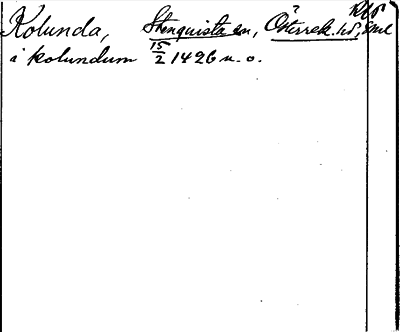 Kolunda, Stenquista sn, Österrek. hd, Sml
i kolundum 15/2 1426 u. o.